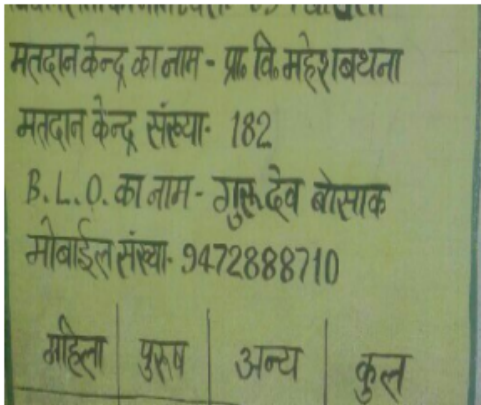 मतदान केन्द्र का नाम - प्रा॰ वि॰ महेशबथना
मतदान केन्द्र संख्या- 182
B.L.O. का नाम - गुरूदेव बोसाक
मोबाईल संख्या- 9472888710
महिला पुरूष अन्य कुल